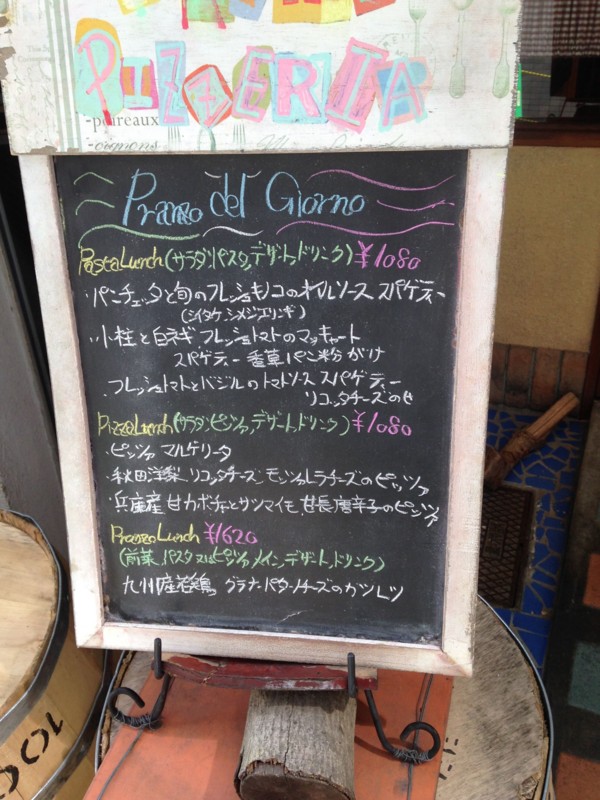 PIZZERIA
-poireaux
-oignons
Pranzo del Giorno
Pasta Lunch (サラダ、パスタ、デザート、ドリンク) ¥1080
・パンチェッタと旬のフレッシュキノコのオイルソース スパゲティー
(シイタケ シメジ エリンギ)
・小柱と白ネギ フレッシュトマトのマッキャート
スパゲティー 香草パン粉がけ
・フレッシュトマトとバジルのトマトソース スパゲティー
リコッタチーズのせ
Pizza Lunch (サラダ、ピッツァ、デザート、ドリンク) ¥1080
・ピッツァ マルゲリータ
・秋田洋梨 リコッタチーズ モッツァレラチーズのピッツァ
・兵庫産 甘カボチャとサツマイモ 甘長唐辛子のピッツァ
Pranzo Lunch ¥1620
(前菜、パスタ又はピッツァ、メイン、デザート、ドリンク)
九州産若鶏 グラナパダーノチーズのカツレツ
100